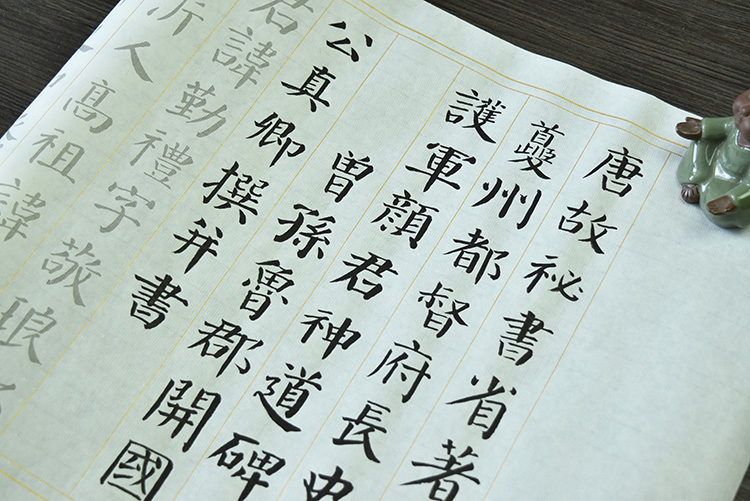 唐故祕書省著
夔州都督府長史
護軍顏君神道碑
曾孫魯郡開國
公真卿撰并書
君諱勤禮字敬琅
沂人高祖諱